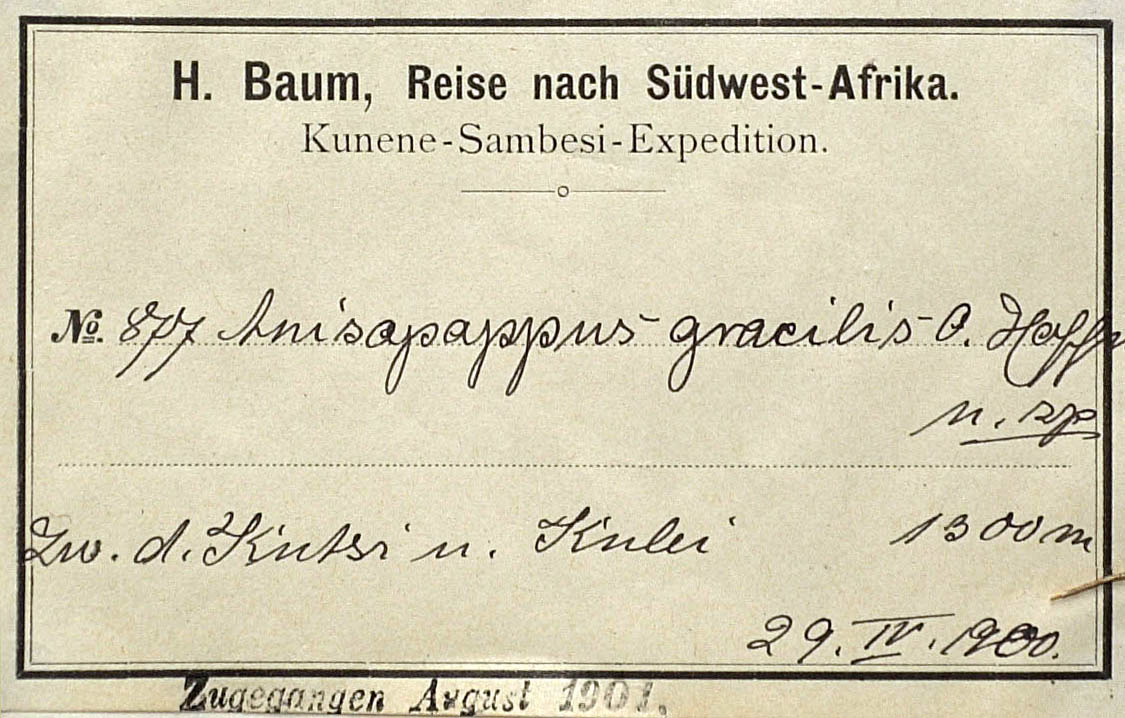 H. Baum, Reise nach Südwest-Afrika.
Kunene-Sambesi-Expedition.
No. 877 Anisopappus gracilis O. Hoffm
n. sp
Zw. d. Kutsi u. Kulei 1300 m
29. IV. 1900.
Zugegangen August 1901.